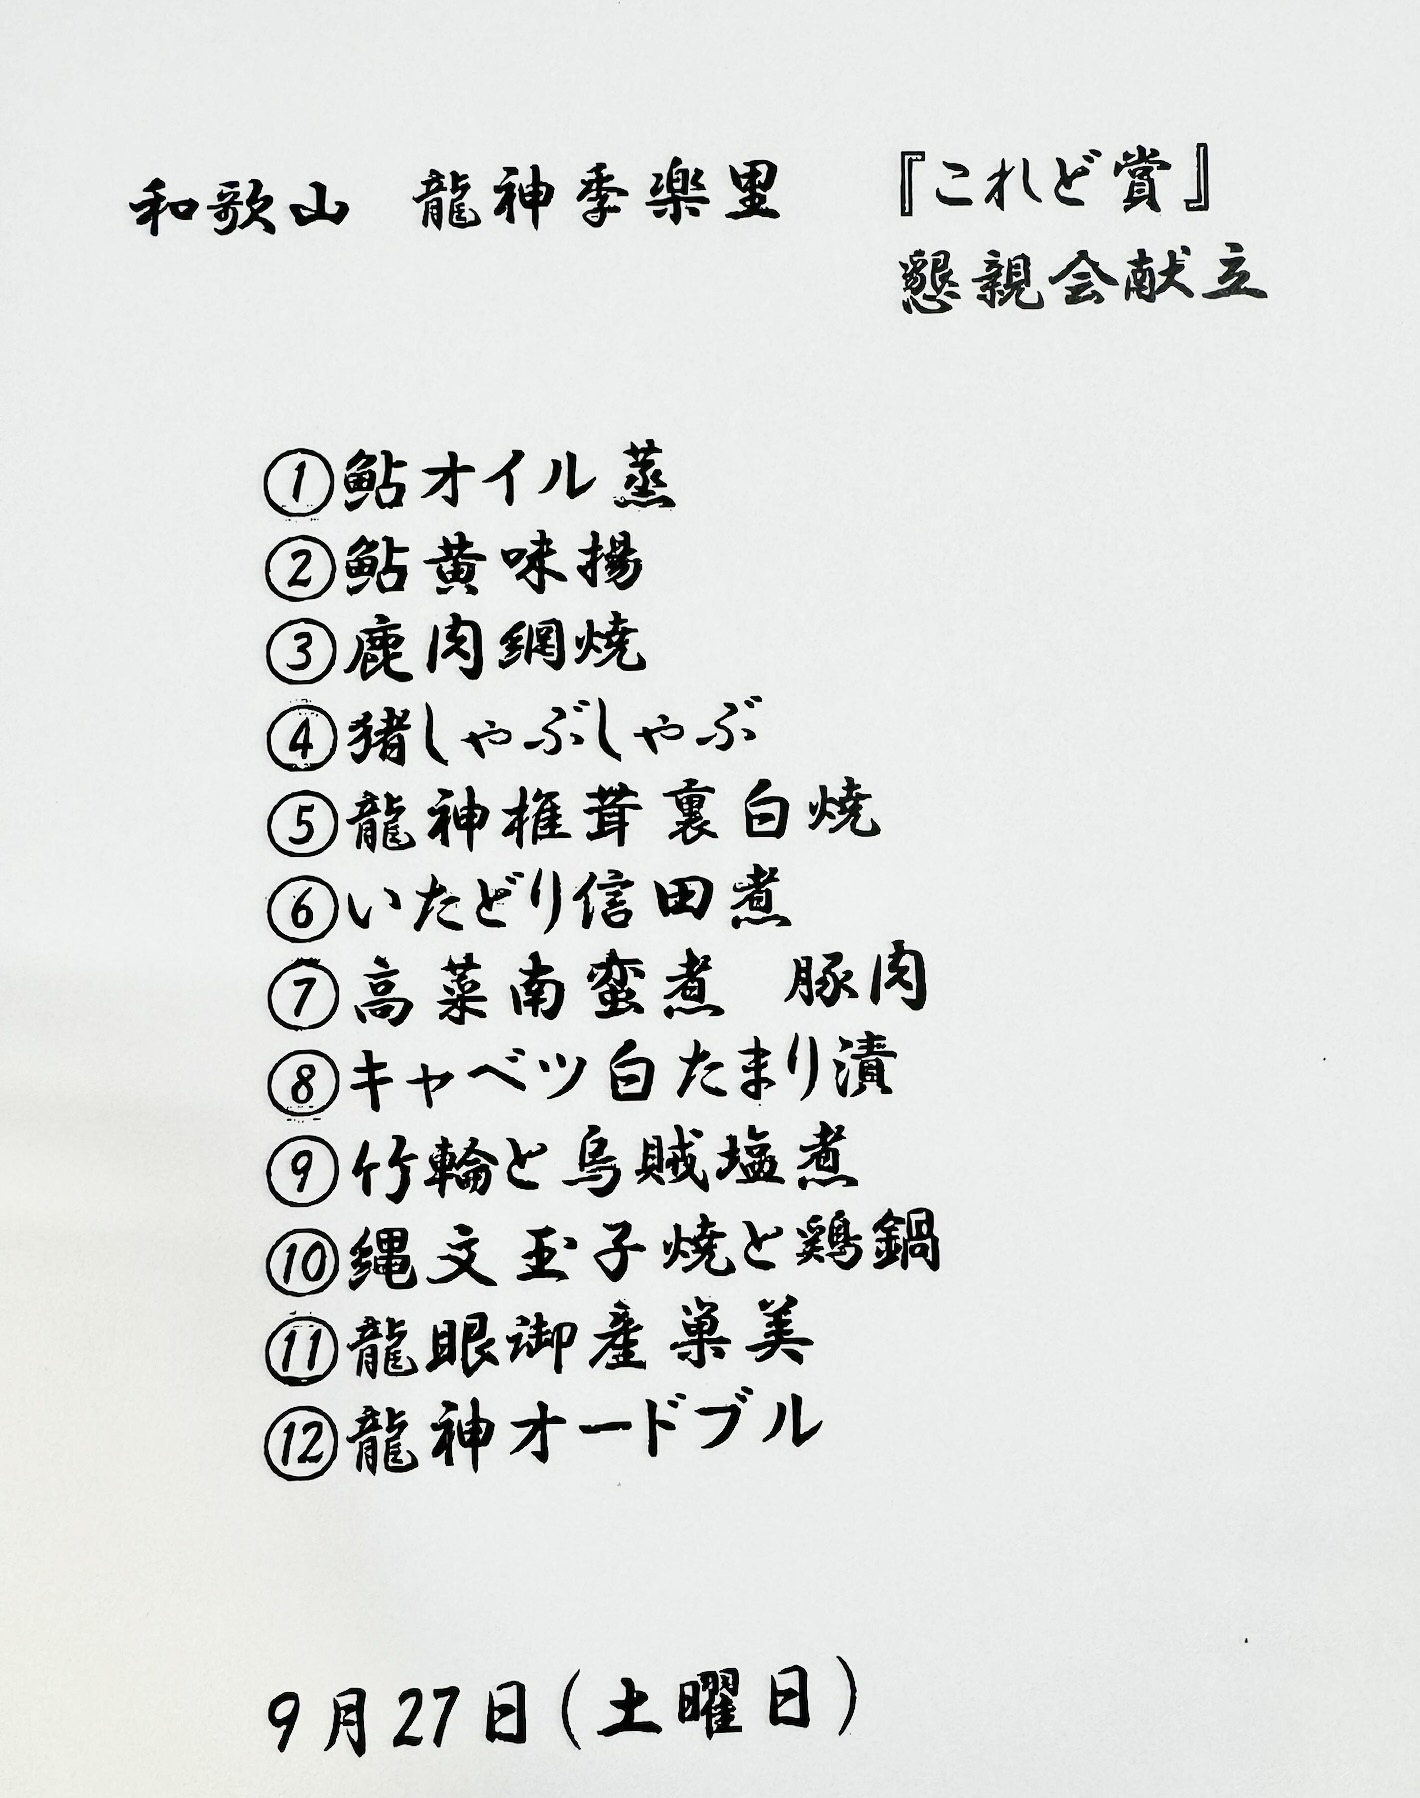 和歌山　龍神季楽里　『これど賞』
懇親会献立
①鮎オイル蒸
②鮎黄味揚
③鹿肉網焼
④猪しゃぶしゃぶ
⑤龍神椎茸裏白焼
⑥いたどり信田煮
⑦高菜南蛮煮　豚肉
⑧キャベツ白たまり漬
⑨竹輪と烏賊塩煮
⑩縄文玉子焼と鶏鍋
⑪龍眼御産巣美
⑫龍神オードブル
9月27日(土曜日)